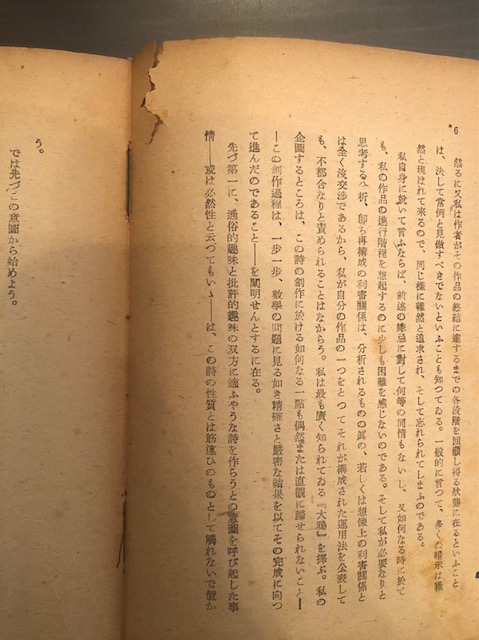 6
然るに又私は作者がその作品の終結に達するまでの各段階を回顧し得る狀態に在るといふこと
は、決して常例と見做すべきでないといふことも知つてゐる。一般的に言つて、多くの暗示は雜
然と現はれて來るので、同じ樣に雜然と追求され、そして忘れられてしまふのである。
私自身に就いて言ふならば、前述の嫌忌に對して何等の同情もないし、又如何なる時に於て
も、私の作品の進行階程を想起するのに少しも困難を感じないのである。そして私が必要なりと
思考する分析、卽ち再構成の利害關係は、分析されるものの眞の、若しくは想像上の利害關係と
は全く沒交涉であるから、私が自分の作品の一つをとつてそれが構成された運用法を公表して
も、不都合なりと責められることはなからう。私は最も廣く知られてゐる『大鴉』を採ぶ。私の
企圖するところは、この詩の創作に於ける如何なる一點も偶然または直觀に歸せられないこと―
―この創作過程は、一步一步、數學の問題に見る如き精確さと嚴密な結果を以てその完成に向つ
て進んだのであること――を闡明せんとするに在る。
先づ第一に、通俗的趣味と批評的趣味の双方に適ふやうな詩を作らうとの意圖を呼び起した事
情――或は必然性と云つてもいゝ――は、この詩の性質とは筋違ひのものとして觸れないで置か
う。
では先づこの意圖から始めよう。